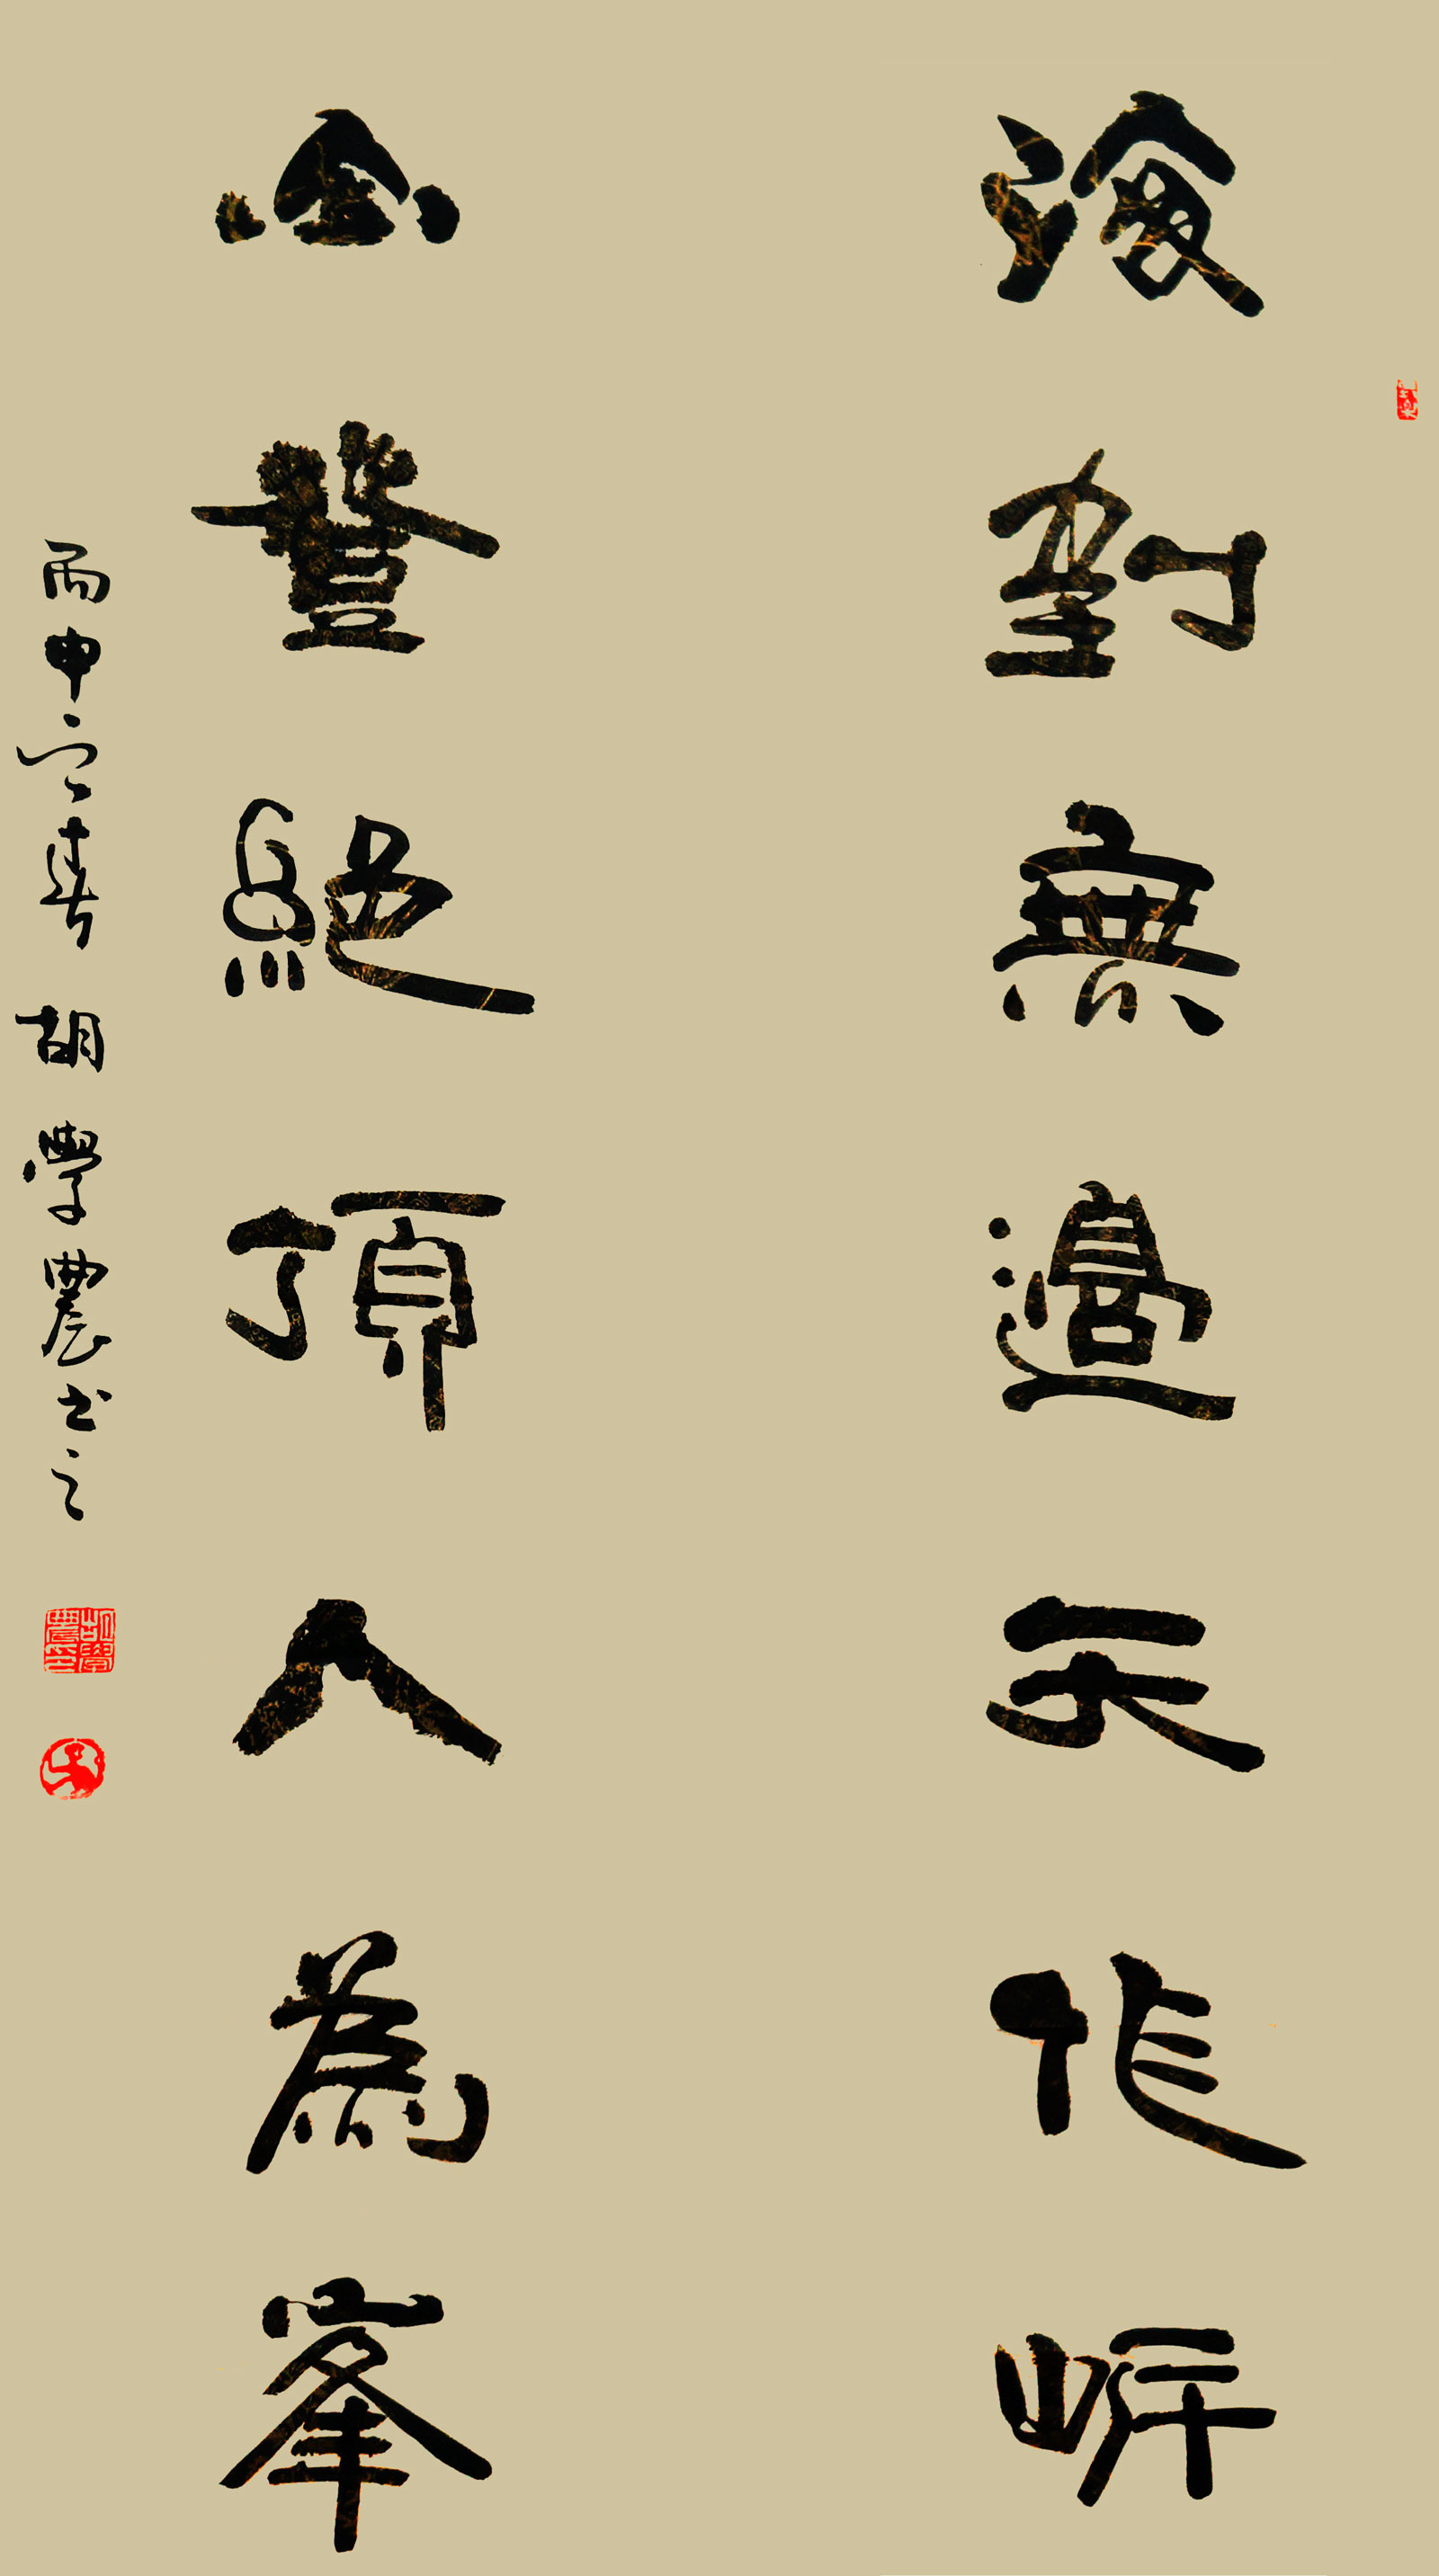 海到無邊天作岸
山登絕頂人為峯
丙申春 胡學農书之
胡學農印